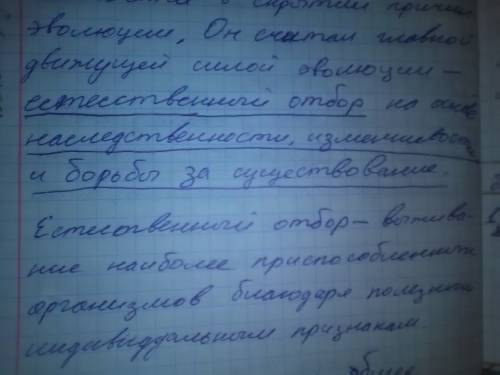 о скрытии причин
эволюции, Он считал главной
движущей силой эволюции —
естественный отбор на основе
наследственности, изменчивости
и борьбы за существование.
Естественный отбор — выжива-
ние наиболее приспособленных
организмов благодаря полезным
индивидуальным признакам.
общее